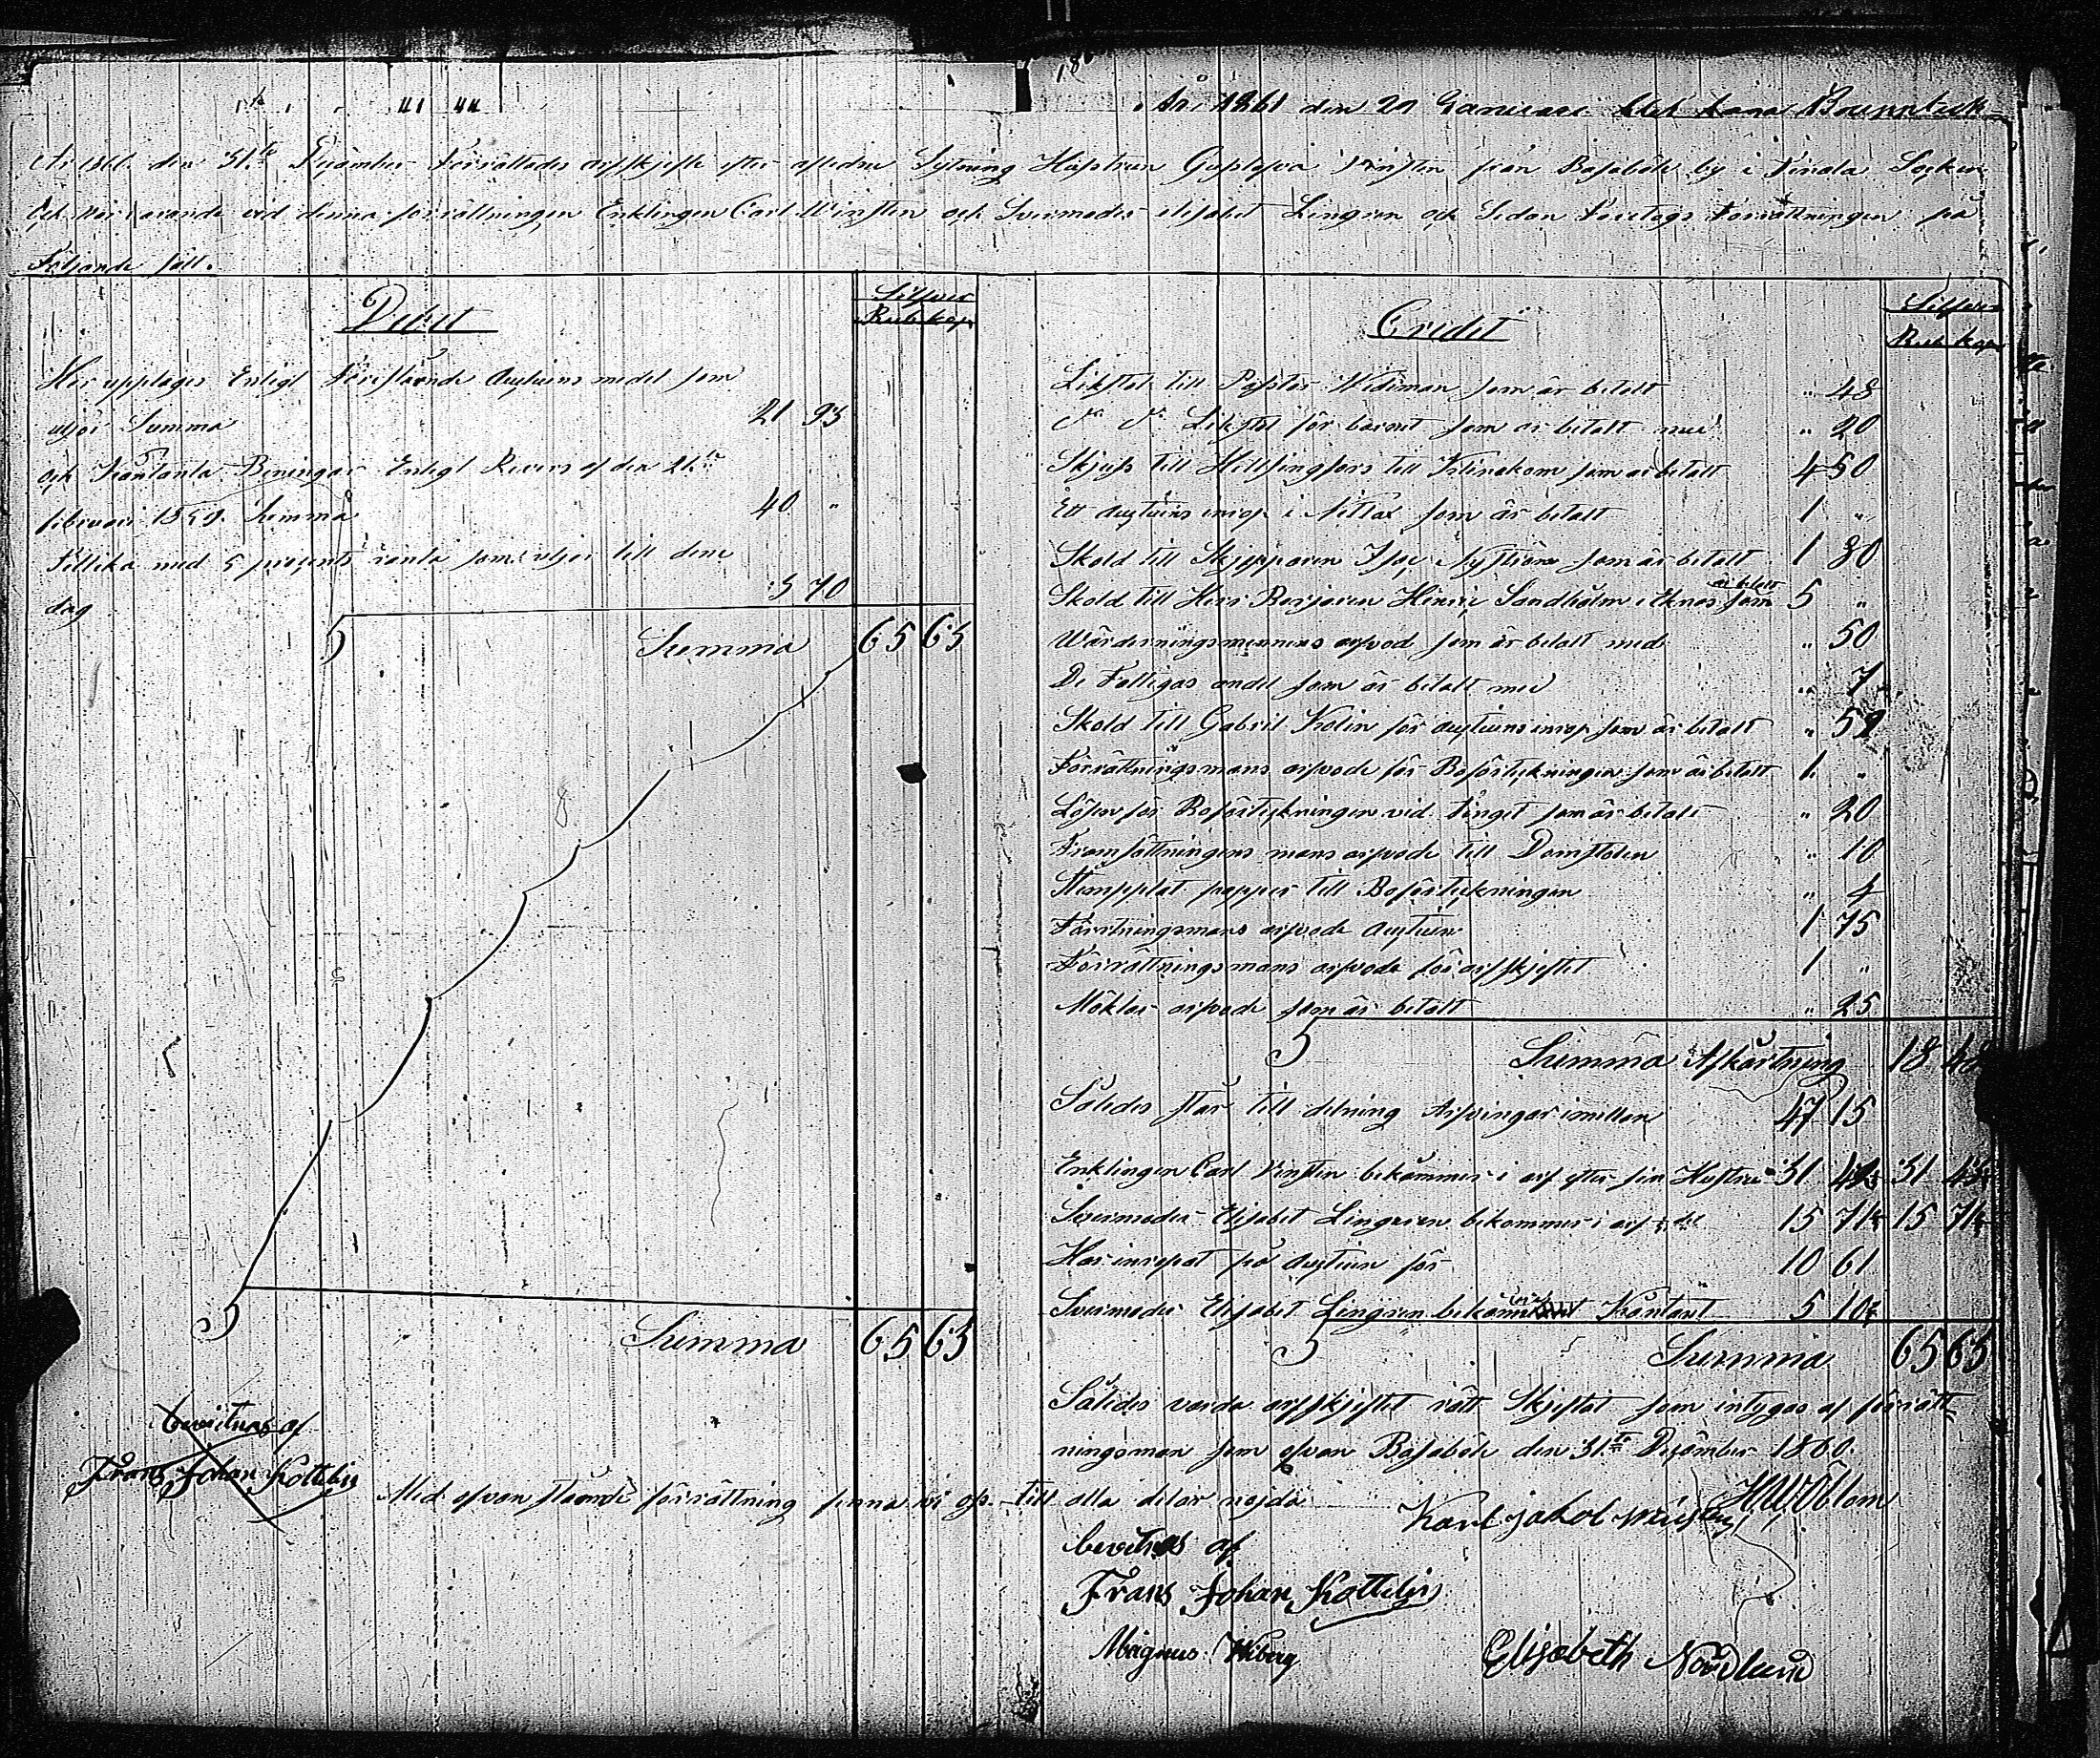 År 1861 den 21 Januari
År 1860 den 31:te Desember förrättades arfskjefte efter afledne Sytning Hustrun Winsten från Basaböle by i Tenala Socken
Och när varande vid denna förrättningen Enklingen Carl Winsten och Svermoder elisabet Lingren och Sedan Företogs Förrättningen på
Följande sätt.
Debet
Silfver
Rub kop
Her upptages Enligt Förestående Auxtions medel som
utjör Summa 21 93
och Kontanta Peningar Enligt Revers af den 21:te
februari 1859. Summa 40 "
Tillika med 5 procents ränta som utjör till denna
dag 3 70
Summa 65 63
Summa 65 63
bevitnas af
Frans Johan Kottelin
Credit
Silfver
Rub kop
Likstol till Pastor Wideman som är betalt " 48
d:o d:o Likstol för barnet som är betalt med " 20
Skjuss till Hellsingfors till Klinekom som är betalt 4 50
Ett Auxtions inrop i som är betalt 1 "
Skold till Skjepparen Nyström som är betalt 1 80
Skold till Herr Henric Sandholm i Eknäs som är betalt 5 "
Wärderningsmennens arfvod som är betalt med " 50
De Fattigas andel som är betalt med " 7
Skold till Gabriel Kolin för auxtions inrop som är betalt " 59
Förrättningsmans arfvode för Boförteckningen som är betalt 1 "
Lösen för Boförteckningen vid Tinget som är betalt " 20
Framsättningens mans arfvode till Domstolen " 10
Stempplat papper till Boförteckningen " 4
Förrttningsmans arfvode Auxtion 1 75
Förrättningsmans arfvode för arfskjeftet 1 "
Möklar arfvode som är betalt " 25
Summa Afkortning 18 48
Således står till delning Arfvingar imellan 47 15
Enklingen Carl Vinsten bekommer i arf efter sin Hustru 31 43 31 43
Svermoder Elisabet Lingren bekommer i arf 15 71 15 71
Har inropat på Auxtion för 10 61
Svermoder Elisabet Lingren Kontant 5 10
Summa 65 63
Således varde arfskjeftet rätt Skjeftat som intygas af förrätt-
ningsman som ofvan Basaböle den 31:te Desember 1860.
Med ofvan stående förrättning finna vi oss till alla delar nöjda
Karl jakob Winsten
bevitnas af
Frans Johan Kottelin
Magnus Wiberg
Elisabeth Nordlund